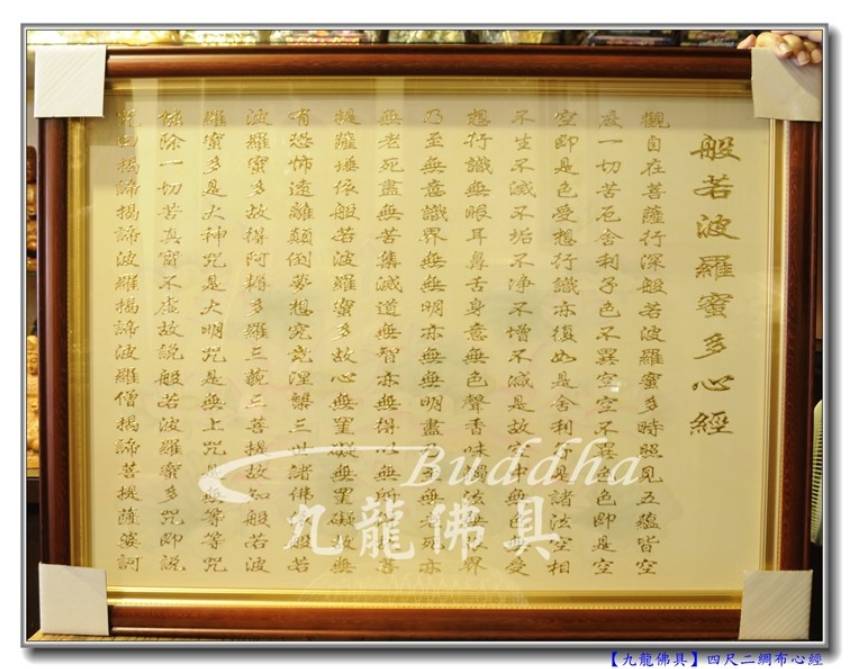 般若波羅蜜多心經
觀自在菩薩行深般若波羅蜜多時照見五蘊皆空
度一切苦厄舍利子色不異空空不異色色即是空
空即是色受想行識亦復如是舍利子是諸法空相
不生不滅不垢不淨不增不減是故空中無色無受
想行識無眼耳鼻舌身意無色聲香味觸法無眼界
乃至無意識界無無明亦無無明盡乃至無老死亦
無老死盡無苦集滅道無智亦無得以無所得故菩
提薩埵依般若波羅蜜多故心無罣礙無罣礙故無
有恐怖遠離顛倒夢想究竟涅槃三世諸佛依般若
波羅蜜多故得阿耨多羅三藐三菩提故知般若波
羅蜜多是大神咒是大明咒是無上咒是無等等咒
能除一切苦真實不虛故說般若波羅蜜多咒即說
咒曰揭諦揭諦波羅揭諦波羅僧揭諦菩提薩婆訶
Buddha
九龍佛具
【九龍佛具】四尺二綢布心經